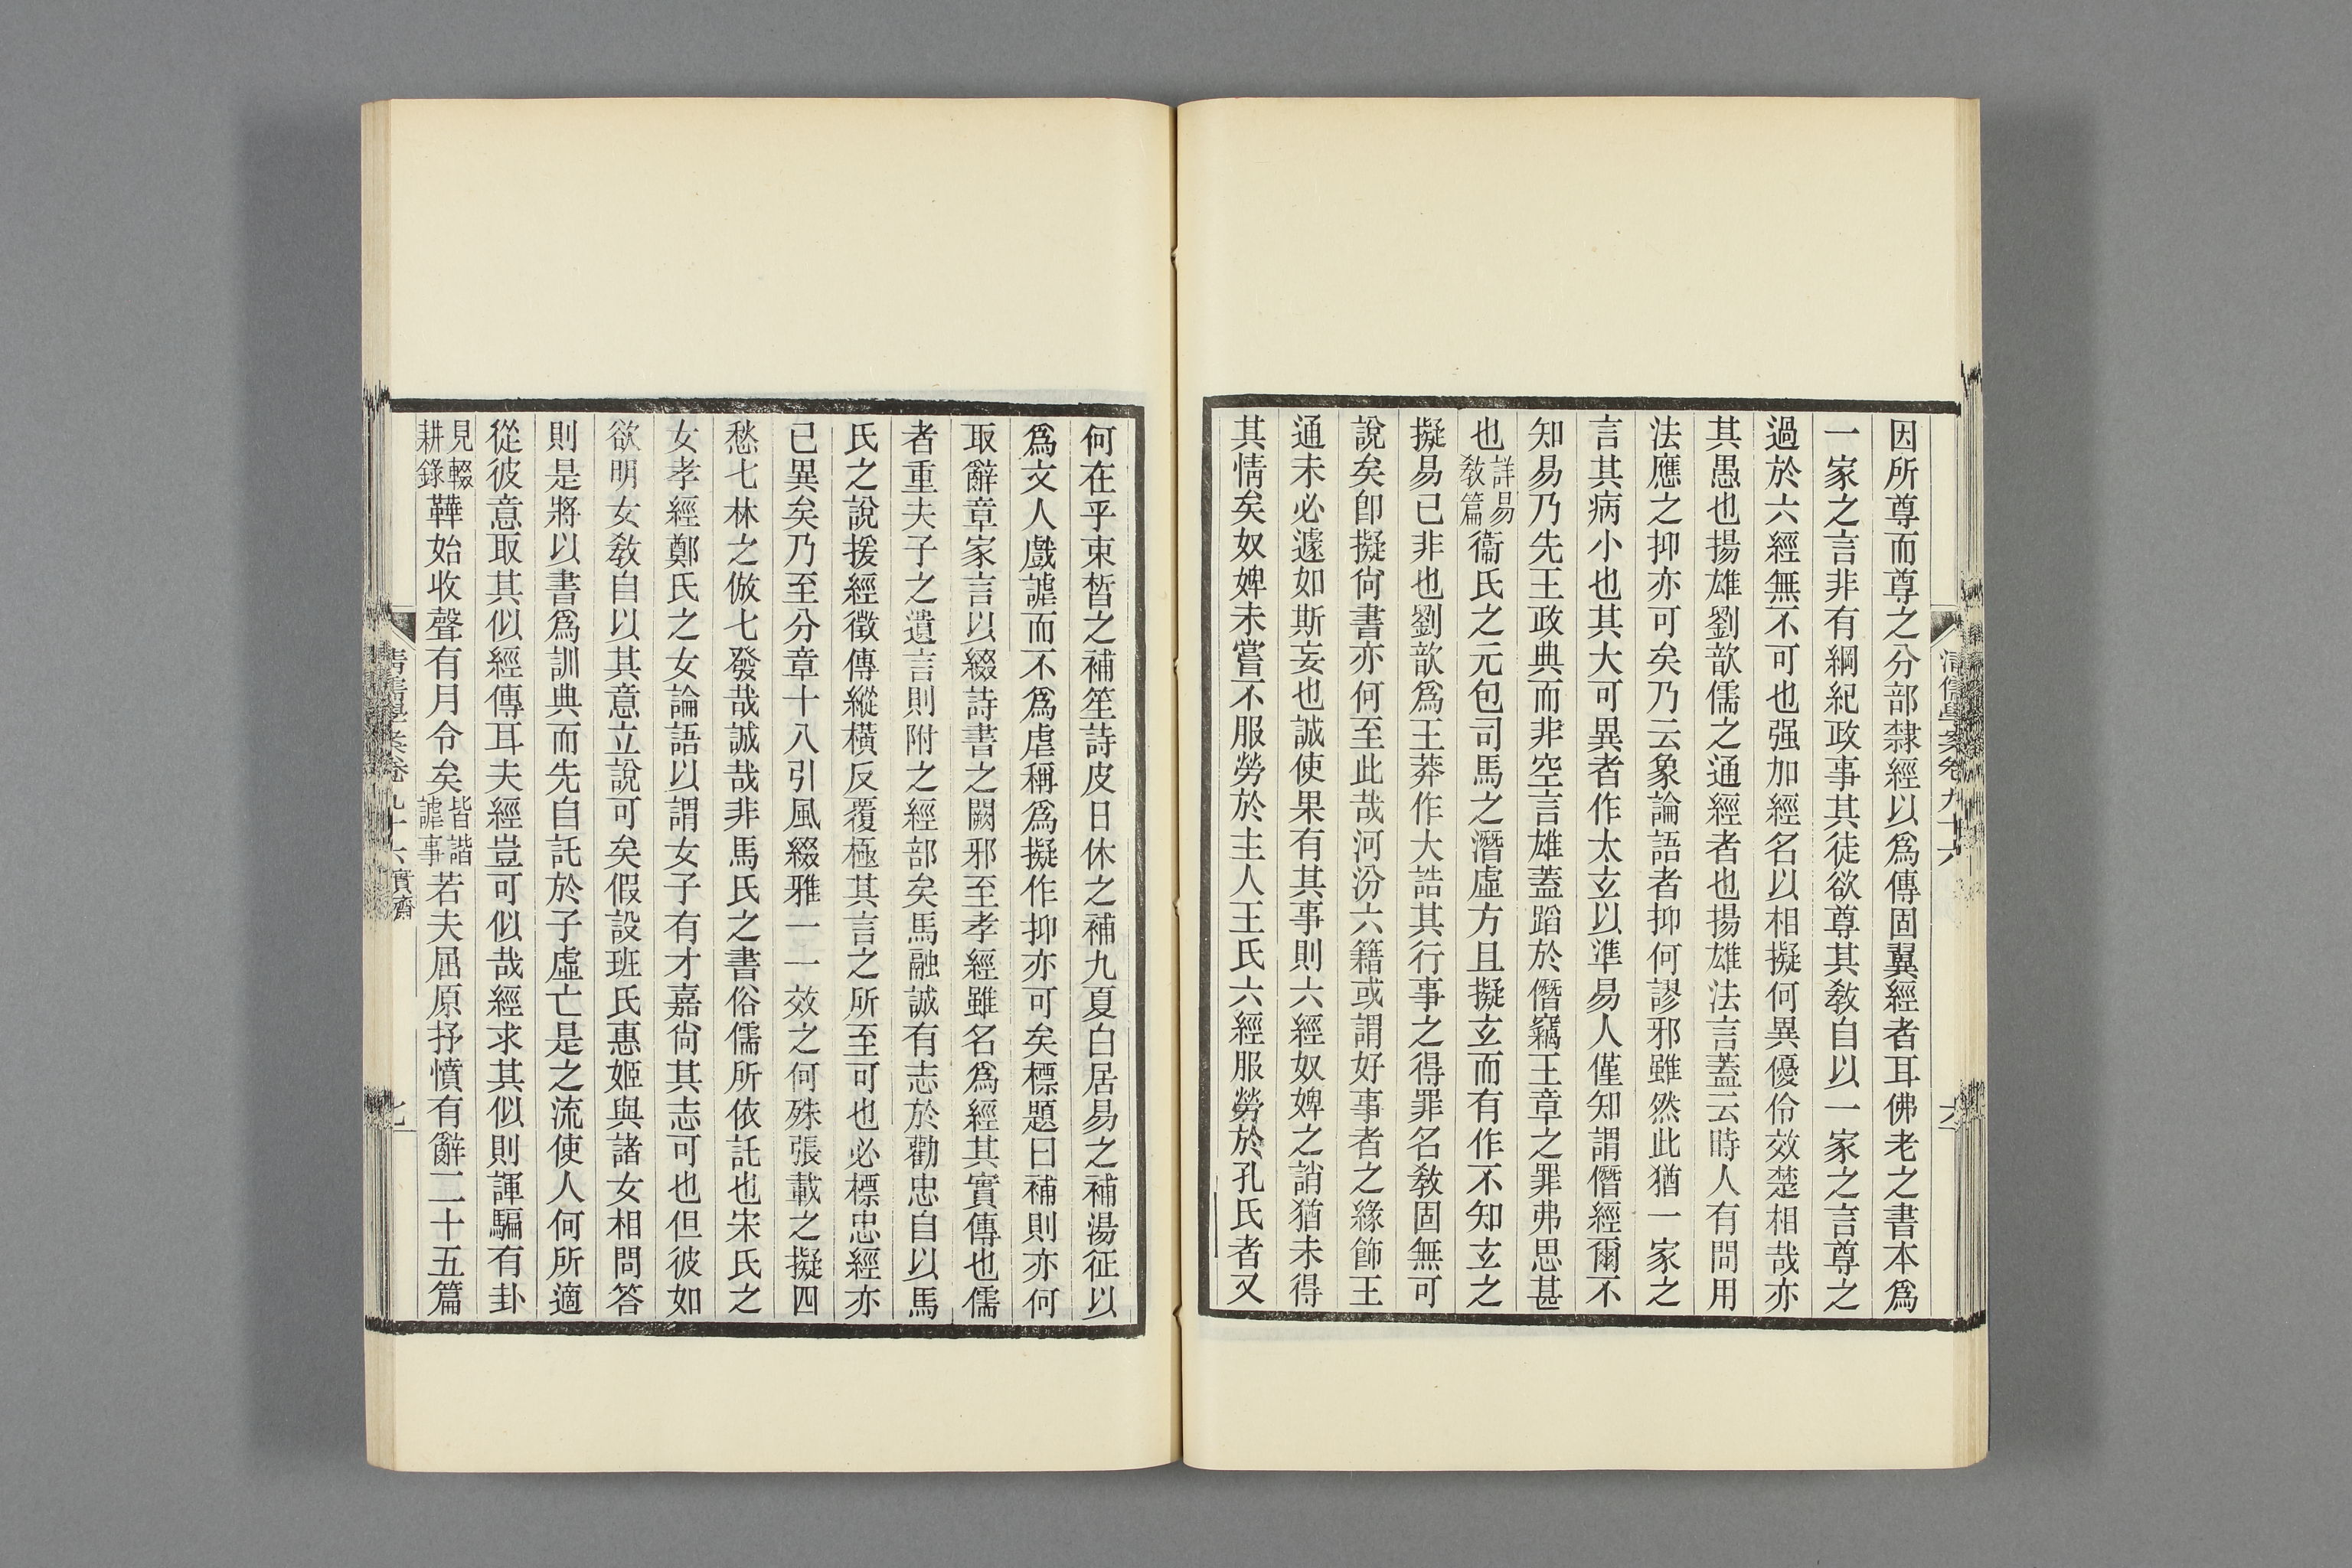 因所尊而尊之分部隸經以爲傳固翼經者耳佛老之書本爲
一家之言非有綱紀政事其徒欲尊其敎自以一家之言尊之
過於六經無不可也强加經名以相擬何異優伶效楚相哉亦
其愚也揚雄劉歆儒之通經者也揚雄法言蓋云時人有問用
法應之抑亦可矣乃云象論語者抑何謬邪雖然此猶一家之
言其病小也其大可異者作太玄以準易人僅知謂僭經爾不
知易乃先王政典而非空言雄蓋蹈於僭竊王章之罪弗思甚
也詳易敎篇衞氏之元包司馬之潛虛方且擬玄而有作不知玄之
擬易已非也劉歆爲王莽作大誥其行事之得罪名敎固無可
說矣卽擬尙書亦何至此哉河汾六籍或謂好事者之緣飾王
通未必遽如斯妄也誠使果有其事則六經奴婢之誚猶未得
其情矣奴婢未嘗不服勞於主人王氏六經服勞於孔氏者又
清儒學案卷九十六
六
何在乎束晳之補笙詩皮日休之補九夏白居易之補湯征以
爲文人戲謔而不爲虐稱爲擬作抑亦可矣標題曰補則亦何
取辭章家言以綴詩書之闕邪至孝經雖名爲經其實傳也儒
者重夫子之遺言則附之經部矣馬融誠有志於勸忠自以馬
氏之說援經徵傳縱橫反覆極其言之所至可也必標忠經亦
已異矣乃至分章十八引風綴雅一一效之何殊張載之擬四
愁七林之倣七發哉誠哉非馬氏之書俗儒所依託也宋氏之
女孝經鄭氏之女論語以謂女子有才嘉尙其志可也但彼如
欲明女敎自以其意立說可矣假設班氏惠姬與諸女相問答
則是將以書爲訓典而先自託於子虛亡是之流使人何所適
從彼意取其似經傳耳夫經豈可似哉經求其似則諢騙有卦
見輟耕錄鞾始收聲有月令矣皆諧謔事若夫屈原抒憤有辭二十五篇
清儒學案卷九十六 實齋
七